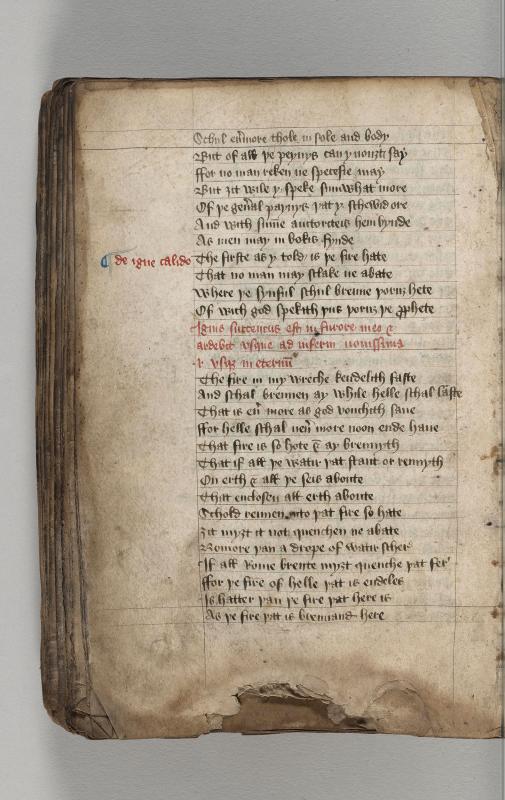 Schul eu̅more thole in sole and body
But of all þe peynys can y nouȝt say
ffor no man reken ne specefie may
But ȝit wile y speke sumwhat more
Of þe gen̅al paynys þat y schewid ore
And with sume auctoriteis hem bynde
As men may in bokis fynde
¶ de igne calido
The firste as y told is þe fire hate
That no man may slake ne abate
Where þe synful schul brenne þoruȝ hete
Of with god spekith þus þoruȝ þe ꝓphete
Ignis succensus est in furore meo &
ardebit vsque ad inferni nouissima
& vsqȝ in eternu̅
The fire in my wreche kendelith faste
And schal brennen ay while helle schal laste
That is eu̅ more as god vouchith saue
ffor helle schal neu̅ more noon ende haue
That fire is so hote & ay brennyth
That if all þe watir þat stant or rennyth
On erth & all þe seis aboute
That enclosen all erth aboute
Schold rennen into þat fire so hate
ȝit myȝt it not quenchen ne abate
Nomore þan a drope of watir scher
If all Rome brente myȝt quenche þat fer
ffor þe fire of helle þat is endeles
Is hatter þan þe fire þat here is
As þe fire þat is brennand here